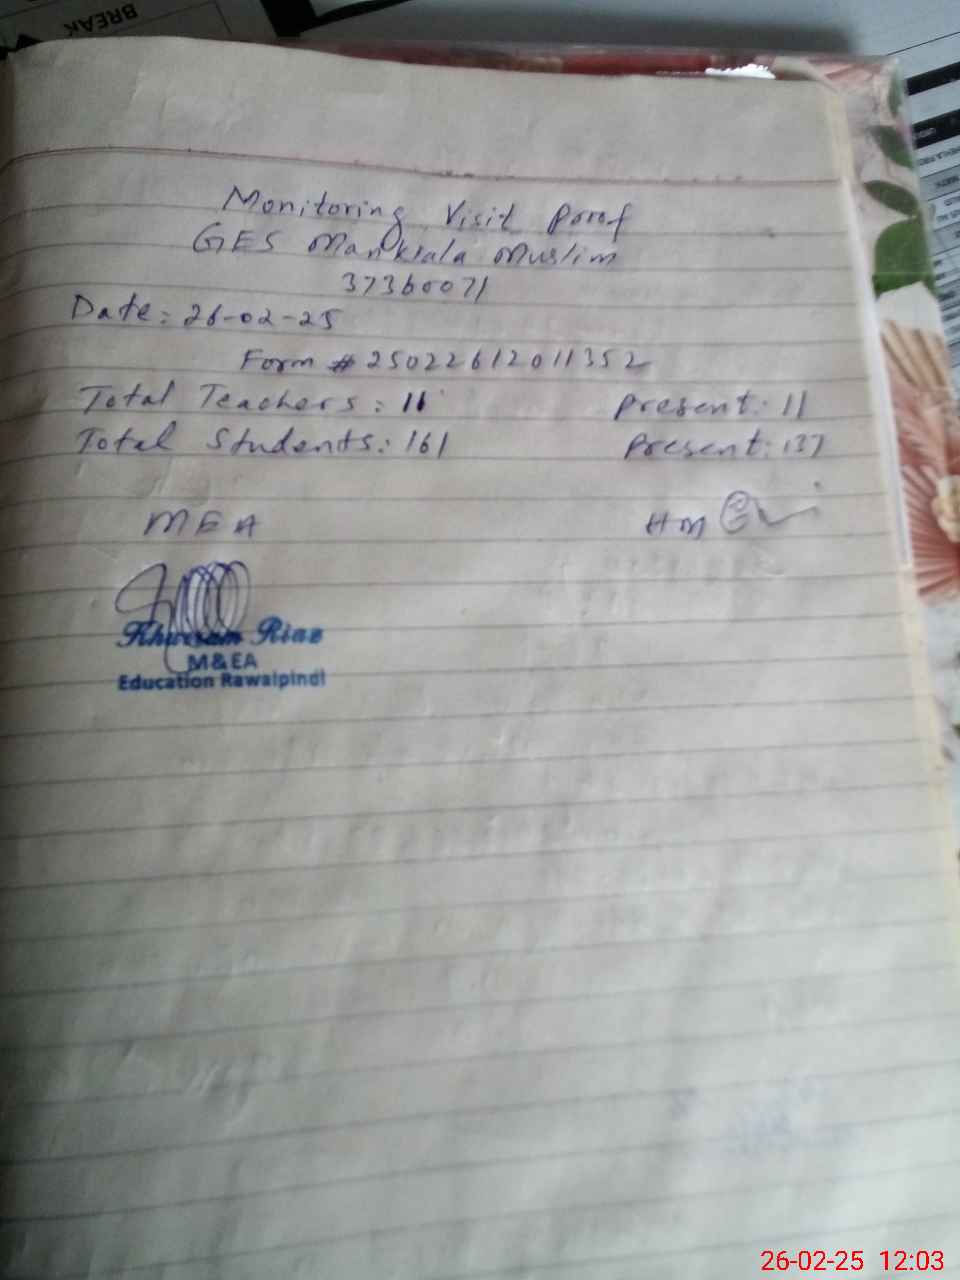 BREAK
Monitoring Visit Proof
GES Mankiala Muslim
37360071
Date: 26-02-25
Form # 25022612011352
Total Teachers: 11 Present: 11
Total Students: 161 Present: 137
MEA HM
Riaz
M&EA
Education Rawalpindi
26-02-25 12:03